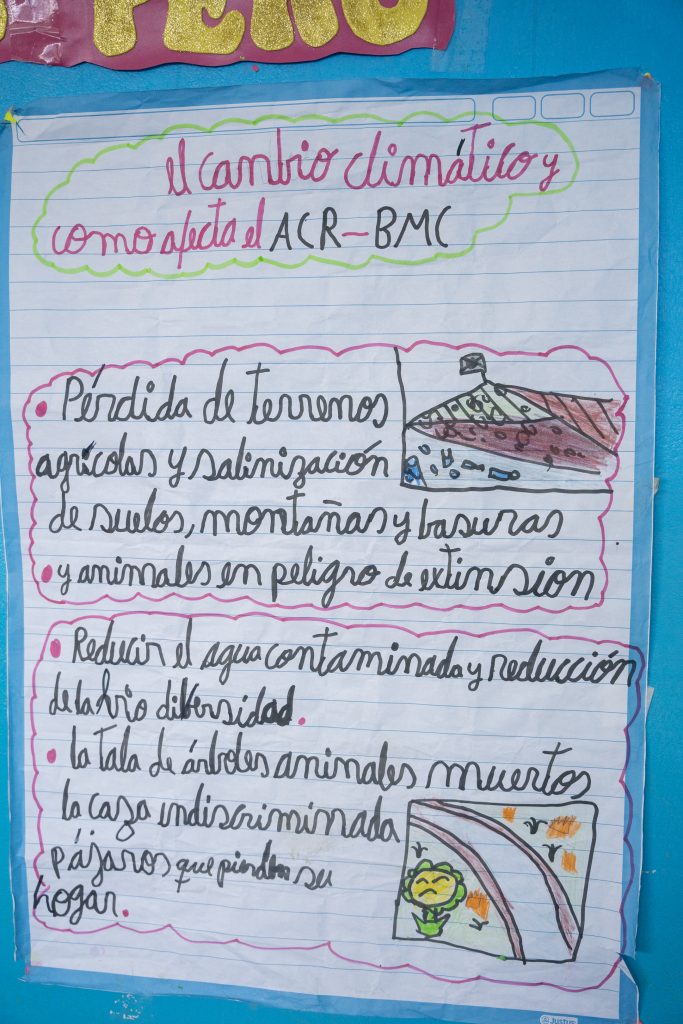 PERÚ
el cambio climático y
como afecta el ACR-BMC
• Pérdida de terrenos
agrícolas y salinización
de suelos, montañas y basuras
• y animales en peligro de extinsion
• Reducir el agua contaminada y reducción
de la bio diversidad.
• la tala de árboles animales muertos
la caza indiscriminada
pájaros que pierden su
hogar.
@JUSTUS